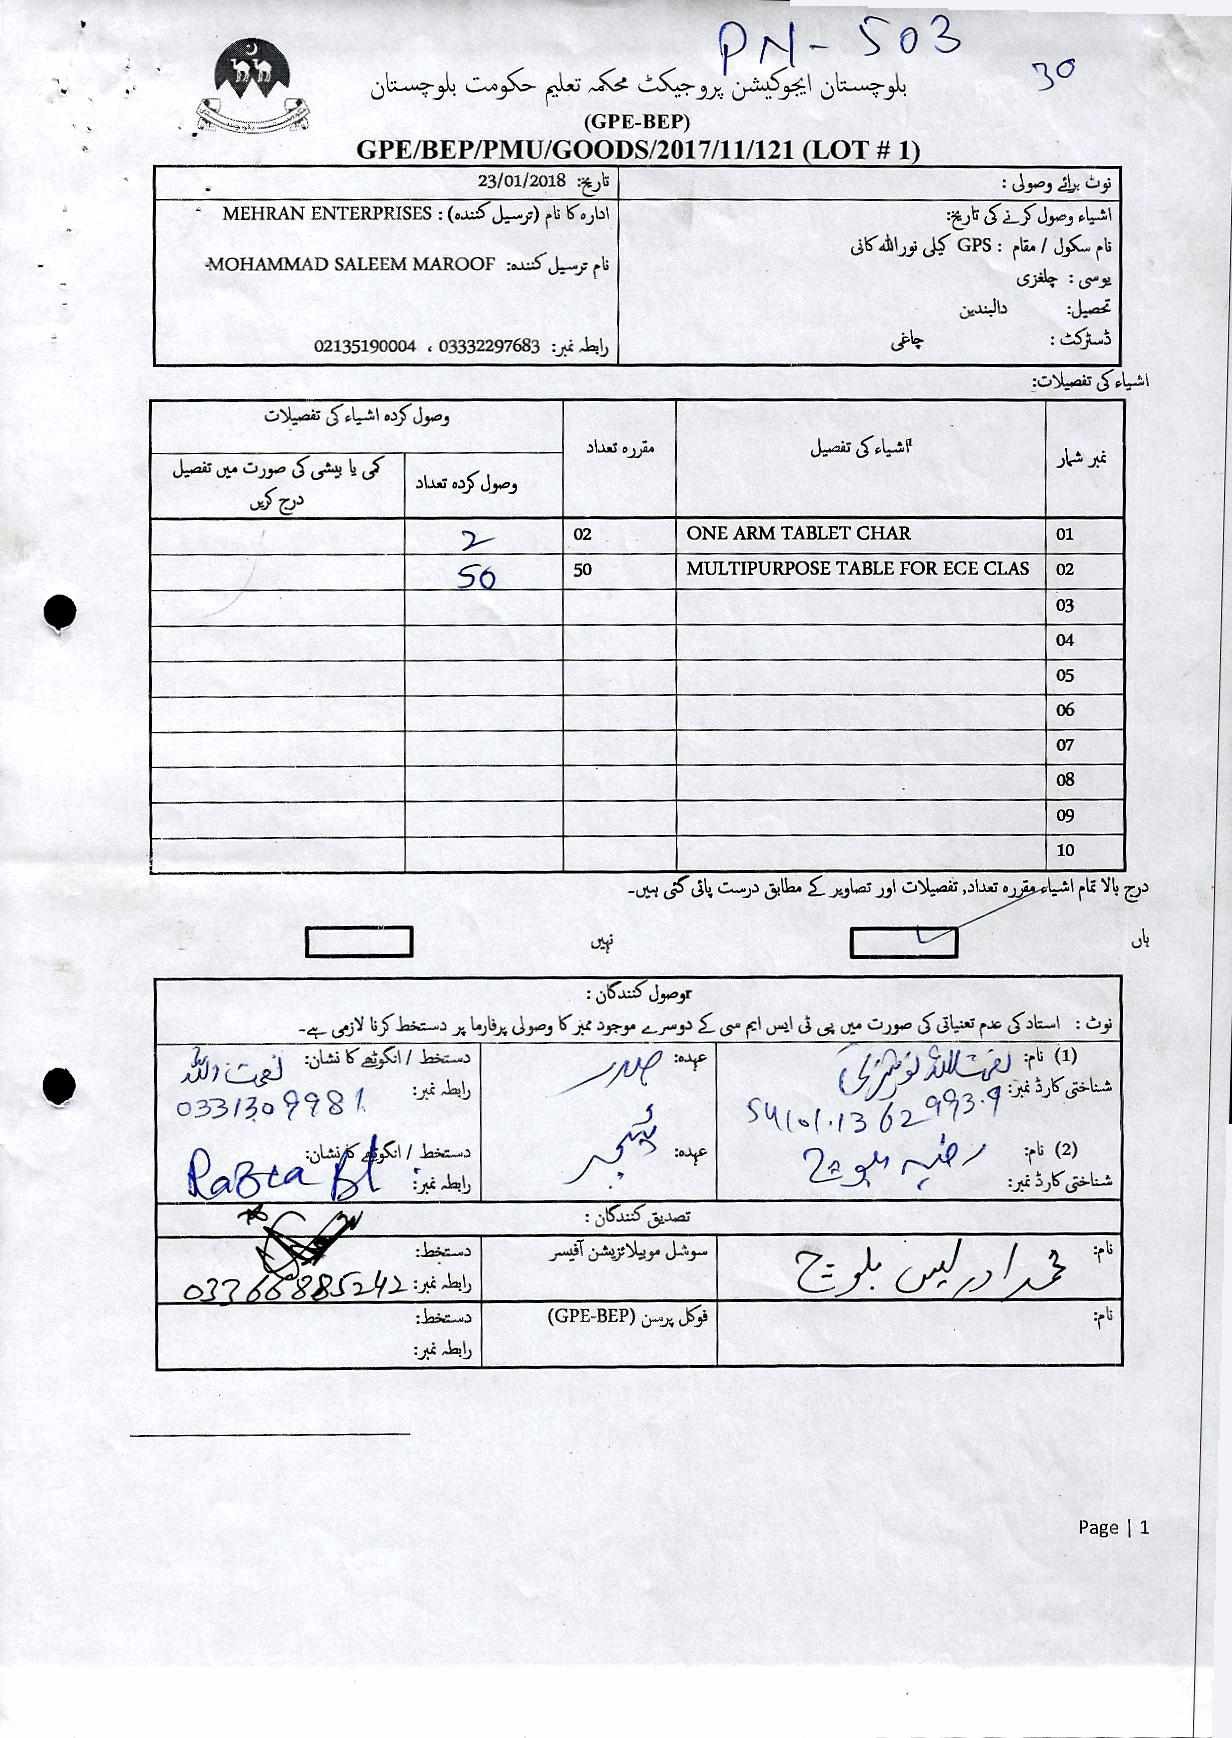 PN-503
30
بلوچستان ایجوکیشن پروجیکٹ محکمہ تعلیم حکومت بلوچستان
(GPE-BEP)
GPE/BEP/PMU/GOODS/2017/11/121 (LOT # 1)
نوٹ برائے وصولی :
تاریخ: 23/01/2018
اشیاء وصول کرنے کی تاریخ:
نام سکول / مقام : GPS کیلی نوراللہ کانی
یوسی : چلغزی
تحصیل: دالبندین
ڈسٹرکٹ : چاغی
ادارہ کا نام (ترسیل کنندہ) : MEHRAN ENTERPRISES
نام ترسیل کنندہ: MOHAMMAD SALEEM MAROOF
رابطہ نمبر: 03332297683 ، 02135190004
اشیاء کی تفصیلات:
نمبر شمار اشیاء کی تفصیل مقررہ تعداد وصول کردہ اشیاء کی تفصیلات
وصول کردہ تعداد کمی یا بیشی کی صورت میں تفصیل درج کریں
01 ONE ARM TABLET CHAR 02 2
02 MULTIPURPOSE TABLE FOR ECE CLAS 50 50
03
04
05
06
07
08
09
10
درج بالا تمام اشیاء مقررہ تعداد, تفصیلات اور تصاویر کے مطابق درست پائی گئی ہیں۔
ہاں نہیں
وصول کنندگان :
نوٹ : استاد کی عدم تعنیاتی کی صورت میں پی ٹی ایس ایم سی کے دوسرے موجود ممبز کا وصولی پرفارما پر دستخط کرنا لازمی ہے۔
(1) نام: نعمت اللہ عہدہ: صدر دستخط / انگوٹھے کا نشان: نعمت اللہ
شناختی کارڈ نمبر: رابطہ نمبر: 0331309981
(2) نام: رضیہ بلوچ عہدہ: ٹیچر دستخط / انگوٹھے کا نشان:
شناختی کارڈ نمبر: رابطہ نمبر:
تصدیق کنندگان :
نام: محمد ادریس بلوچ سوشل موبیلائزیشن آفیسر دستخط:
رابطہ نمبر: 03366885242
نام: فوکل پرسن (GPE-BEP) دستخط:
رابطہ نمبر:
Page | 1